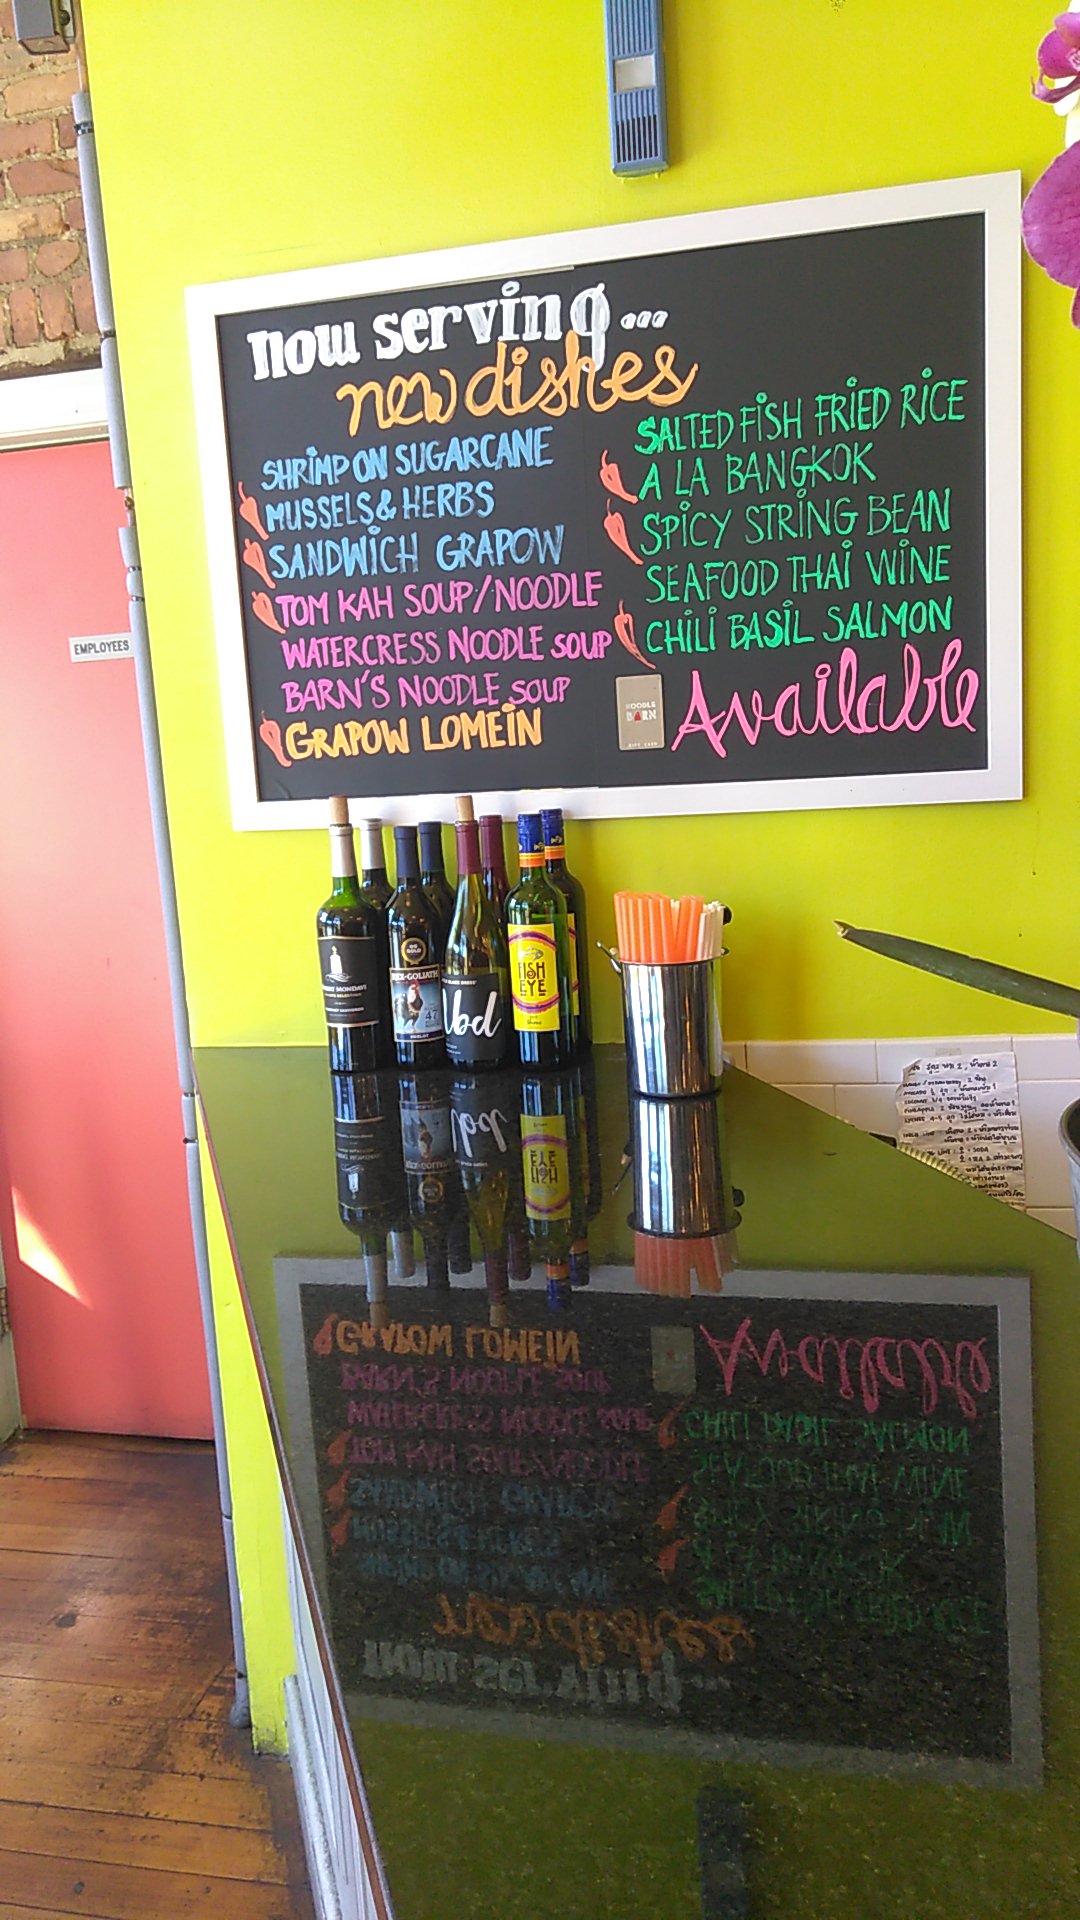 now serving...
new dishes
SHRIMP ON SUGARCANE
MUSSELS & HERBS
SANDWICH GRAPOW
TOM KAH SOUP/NOODLE
WATERCRESS NOODLE SOUP
BARN'S NOODLE SOUP
GRAPOW LOMEIN
SALTED FISH FRIED RICE
A LA BANGKOK
SPICY STRING BEAN
SEAFOOD THAI WINE
CHILI BASIL SALMON
NOODLE
BARN
GIFT CARD
Available
EMPLOYEES
MONDAVI
REX-GOLIATH
47
MERLOT
lbd
FISH
EYE